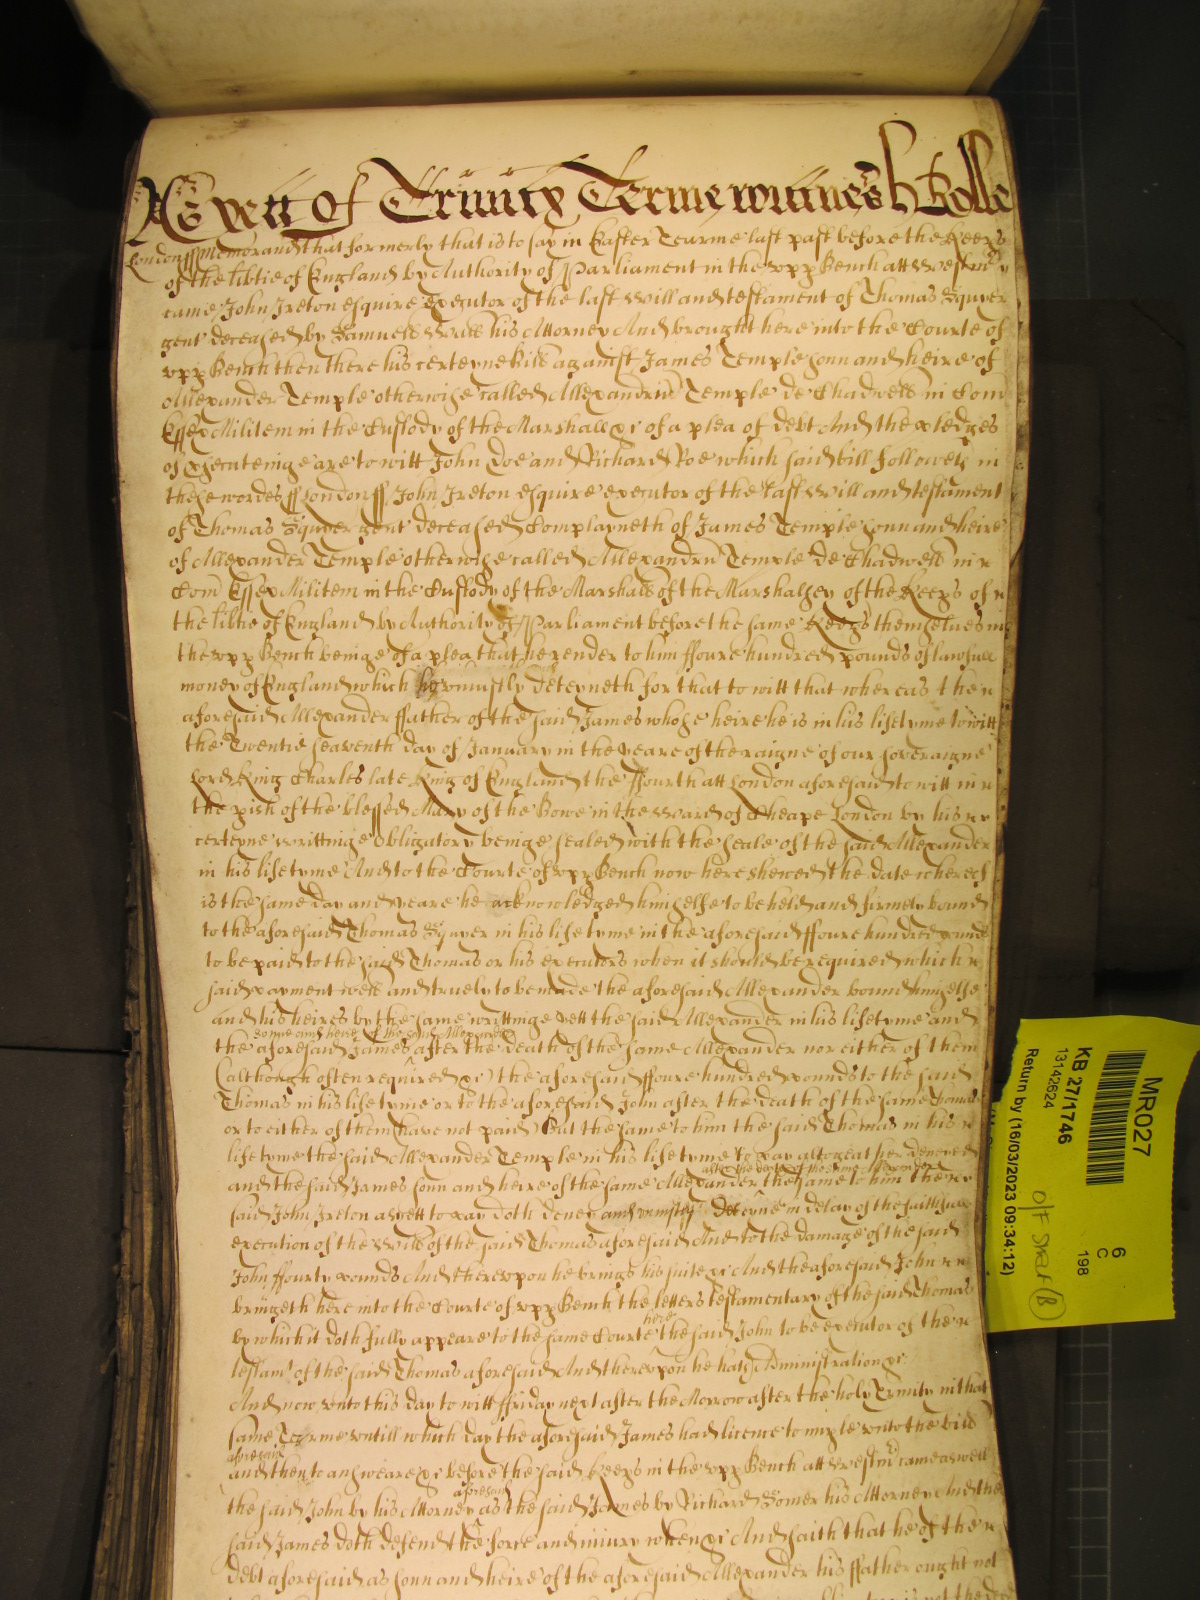 As yett of Trinity Terme wittnes H Rolle
London ss Memorand that formerly that is to say in Easter Tearme last past before the Keeps
of the libtie of England by Authority of Parliament in the upp Bench att Westm
came John Ireton esquire executor of the last Will and testament of Thomas Squyer
gent deceased by Samuell Wall his Attorney And brought here into the Courte of
upp Bench then there his certeyne Bill against James Temple sonn and heire of
Allexander Temple otherwise called Allexandru Temple de Chadwell in Com
Essex Militem in the Custody of the Marshall &c of a plea of debt And the pledges
of prosecuteinge are to witt John Doe and Richard Roe which said bill followeth in
these wordes ss London ss John Ireton esquire executor of the last Will and testament
of Thomas Squyer gent deceased Complayneth of James Temple sonn and heire
of Allexander Temple otherwise called Allexandru Temple de Chadwell in
Com Essex Militem in the Custody of the Marshall of the Marshalsey of the Keeps of
the libtie of England by Authority of Parliament before the same Keeps themselves in
the upp Bench beinge of a plea that he render to him ffoure hundred pounds of lawfull
money of England which he uniustly deteyneth for that to witt that whereas the
aforesaid Allexander ffather of the said James whose heire he is in his lifetyme to witt
the Twentie seaventh day of January in the yeare of the raigne of our soveraigne
Lord King Charles late King of England the ffourth att London aforesaid to witt in
the pish of the blessed Mary of the Bowe in the Ward of Cheape London by his
certeyne writtinge obligatory beinge sealed with the seale of the said Allexander
in his lifetyme And to the Courte of upp Bench now here shewed the date whereof
is the same day and yeare he acknowledged himselfe to be held and firmely bound
to the aforesaid Thomas Squyer in his lifetyme in the aforesaid ffoure hundred pounds
to be paid to the said Thomas or his executors when it should be required which
said payment well and truely to be made the aforesaid Allexander bound himselfe
and his heires by the same writtinge yett the said Allexander in his lifetyme and
sonne and heire of the said Allexander
the aforesaid James after the death of the same Allexander nor either of them
(although often required &c) the aforesaid ffoure hundred pounds to the said
Thomas in his lifetyme or to the aforesaid John after the death of the same Thomas
or to either of them have not paid) But the same to him the said Thomas in his
lifetyme the said Allexander Temple in his lifetyme to pay altogeather denyed
after the death of the same Allexander
and the said James sonn and heire of the same Allexander the same to him the
said John Ireton as yett to pay doth deney and uniustly deteyne in delay of the faithfull
execution of the Will of the said Thomas aforesaid And to the damage of the said
John ffourty pounds And thereupon he brings his suite &c And the aforesaid John
bringeth here into the Courte of upp Bench the letters testamentary of the said Thomas
here
by which it doth fully appeare to the same Courte the said John to be executor of the
testamt of the said Thomas aforesaid And thereupon he hath Administration &c
And now unto this day to witt ffriday next after the Morrow after the holy Trinity in that
same Tearme untill which day the aforesaid James had licence to imple unto the bill
aforesaid
and then to answeare &c before the said Keeps in the upp Bench att Westm came aswell
aforesaid
the said John by his Attorney as the said James by Richard Somer his Attorney And the
said James doth defend the force and iniury when &c And saith that he of the
debt aforesaid as sonn and heire of the aforesaid Allexander his ffather ought not
MR027
KB 27/1746
13142624
Return by (16/03/2023 09:34:12)
6
C
198
O/F Shelf B